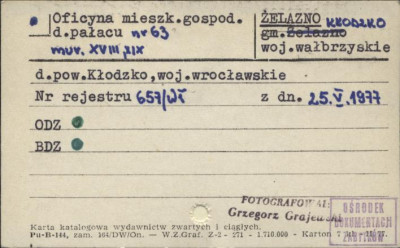 Oficyna mieszk.gospod.
d.pałacu nr 63
mur. XVIII, XIX
ŻELAZNO KŁODZKO
gm. Żelazno
woj.wałbrzyskie
d.pow.Kłodzko,woj.wrocławskie
Nr rejestru 657/Wł z dn. 25.V.1977
ODZ
BDZ
FOTOGRAFOWAŁ:
Grzegorz Grajewski
OŚRODEK
DOKUMENTACJI
ZABYTKÓW
Karta katalogowa wydawnictw zwartych i ciągłych.
Pu-B-144, zam. 164/DW/On. — W.Z.Graf. Z-2 - 271 - 1.710.000 - Karton